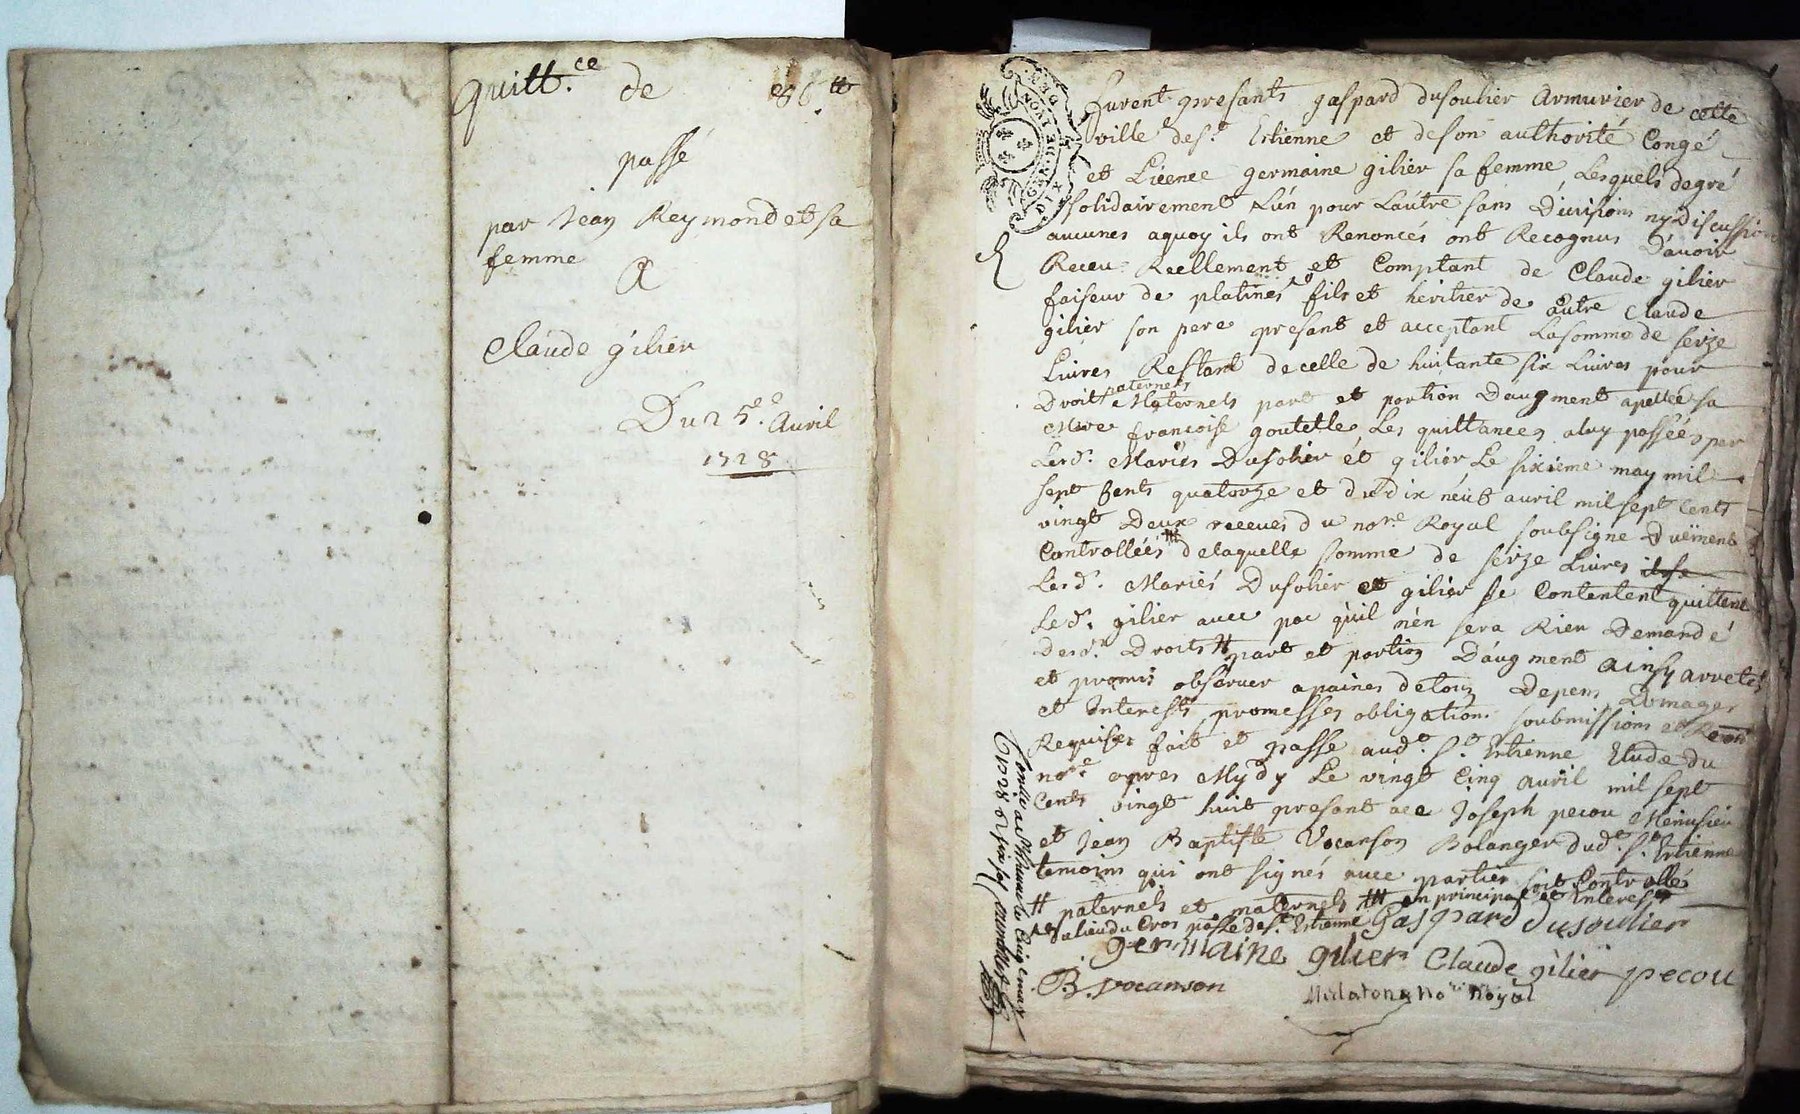 quitt.ce de 86 tt
passé
par Jean Reymond et sa
femme
A
Claude gilier
Du 25e. Avril
1728
furent presants gaspard dusoulier Armurier de cette
ville de st. Estienne et de son authorité Congé
et Licence germaine gilier sa femme Lesquels de gré
solidairement L'un pour L'autre sans Divisions ny Discussion
aucunes a quoy ils ont Renoncés ont Recognus D'avoir
Receu Reellement et Comptant de Claude gilier
faiseur de platines fils et heritier de autre Claude
gilier son pere presant et acceptant La somme de seize
Livres Restant de celle de huitante six Livres pour
Droits paternels Maternels part et portion D'augment apellée sa
Mere francoise goutelle Les quittances a luy passées par
Lesd. Mariés Dusolier et gilier Le sixieme may mil
sept Cents quatorze et du dix neuf avril mil sept Cents
vingt Deux receues du nore. Royal soubsigne Duëment
Controllées de laquelle somme de seize Livres
Lesd. Mariés Dusolier et gilier se Contentent quittent
Led. gilier avec pac qu'il n'en sera Rien Demandé
Desd. Droits part et portion D'augment ainsy arretés
et promis observer a paines de tous Depens Domages
et Interests promesses obligations soubmissions et
Requises fait et passe aud. st. Estienne Etude du
nore. apres Mydy Le vingt Cinq avril mil sept
Cents vingt huit presant Joseph pecou Menusier
et Jean Baptiste Vocanson Bolanger dud. st. Estienne
temoins qui ont signés avec parties soit Controllés
# paternels et maternels ## en principal et Interests
au lieu du Cros pâsse de st. Estienne Gaspard dusoulier
germaine gilier Claude gilier pecou
B. vocanson
nore Royal
Conllé a st Etienne le Cinq may
1728 R six sols